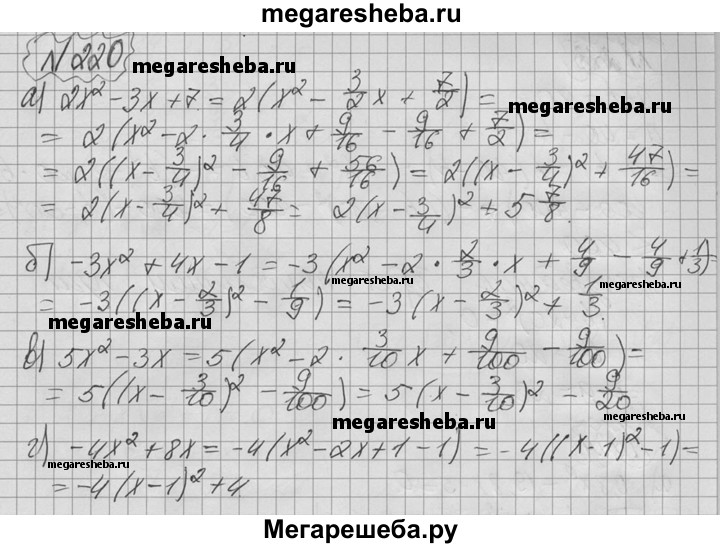 megaresheba.ru
N 220
megaresheba.ru
а) 2x² - 3x + 7 = 2(x² - 3/2 x + 7/2) =
megaresheba.ru
= 2(x² - 2 · 3/4 · x + 9/16 - 9/16 + 7/2) =
= 2((x - 3/4)² - 9/16 + 56/16) = 2((x - 3/4)² + 47/16) =
= 2(x - 3/4)² + 47/8 = 2(x - 3/4)² + 5 7/8.
б) -3x² + 4x - 1 = -3(x² - 2 · 2/3 · x + 4/9 - 4/9 + 1/3) =
megaresheba.ru
megaresheba.ru
= -3((x - 2/3)² - 1/9) = -3(x - 2/3)² + 1/3.
megaresheba.ru
megaresheba.ru
в) 5x² - 3x = 5(x² - 2 · 3/10 x + 9/100 - 9/100) =
= 5((x - 3/10)² - 9/100) = 5(x - 3/10)² - 9/20
megaresheba.ru
megaresheba.ru
г) -4x² + 8x = -4(x² - 2x + 1 - 1) = -4((x - 1)² - 1) =
megaresheba.ru
megaresheba.ru
= -4(x - 1)² + 4
Мегарешеба.ру